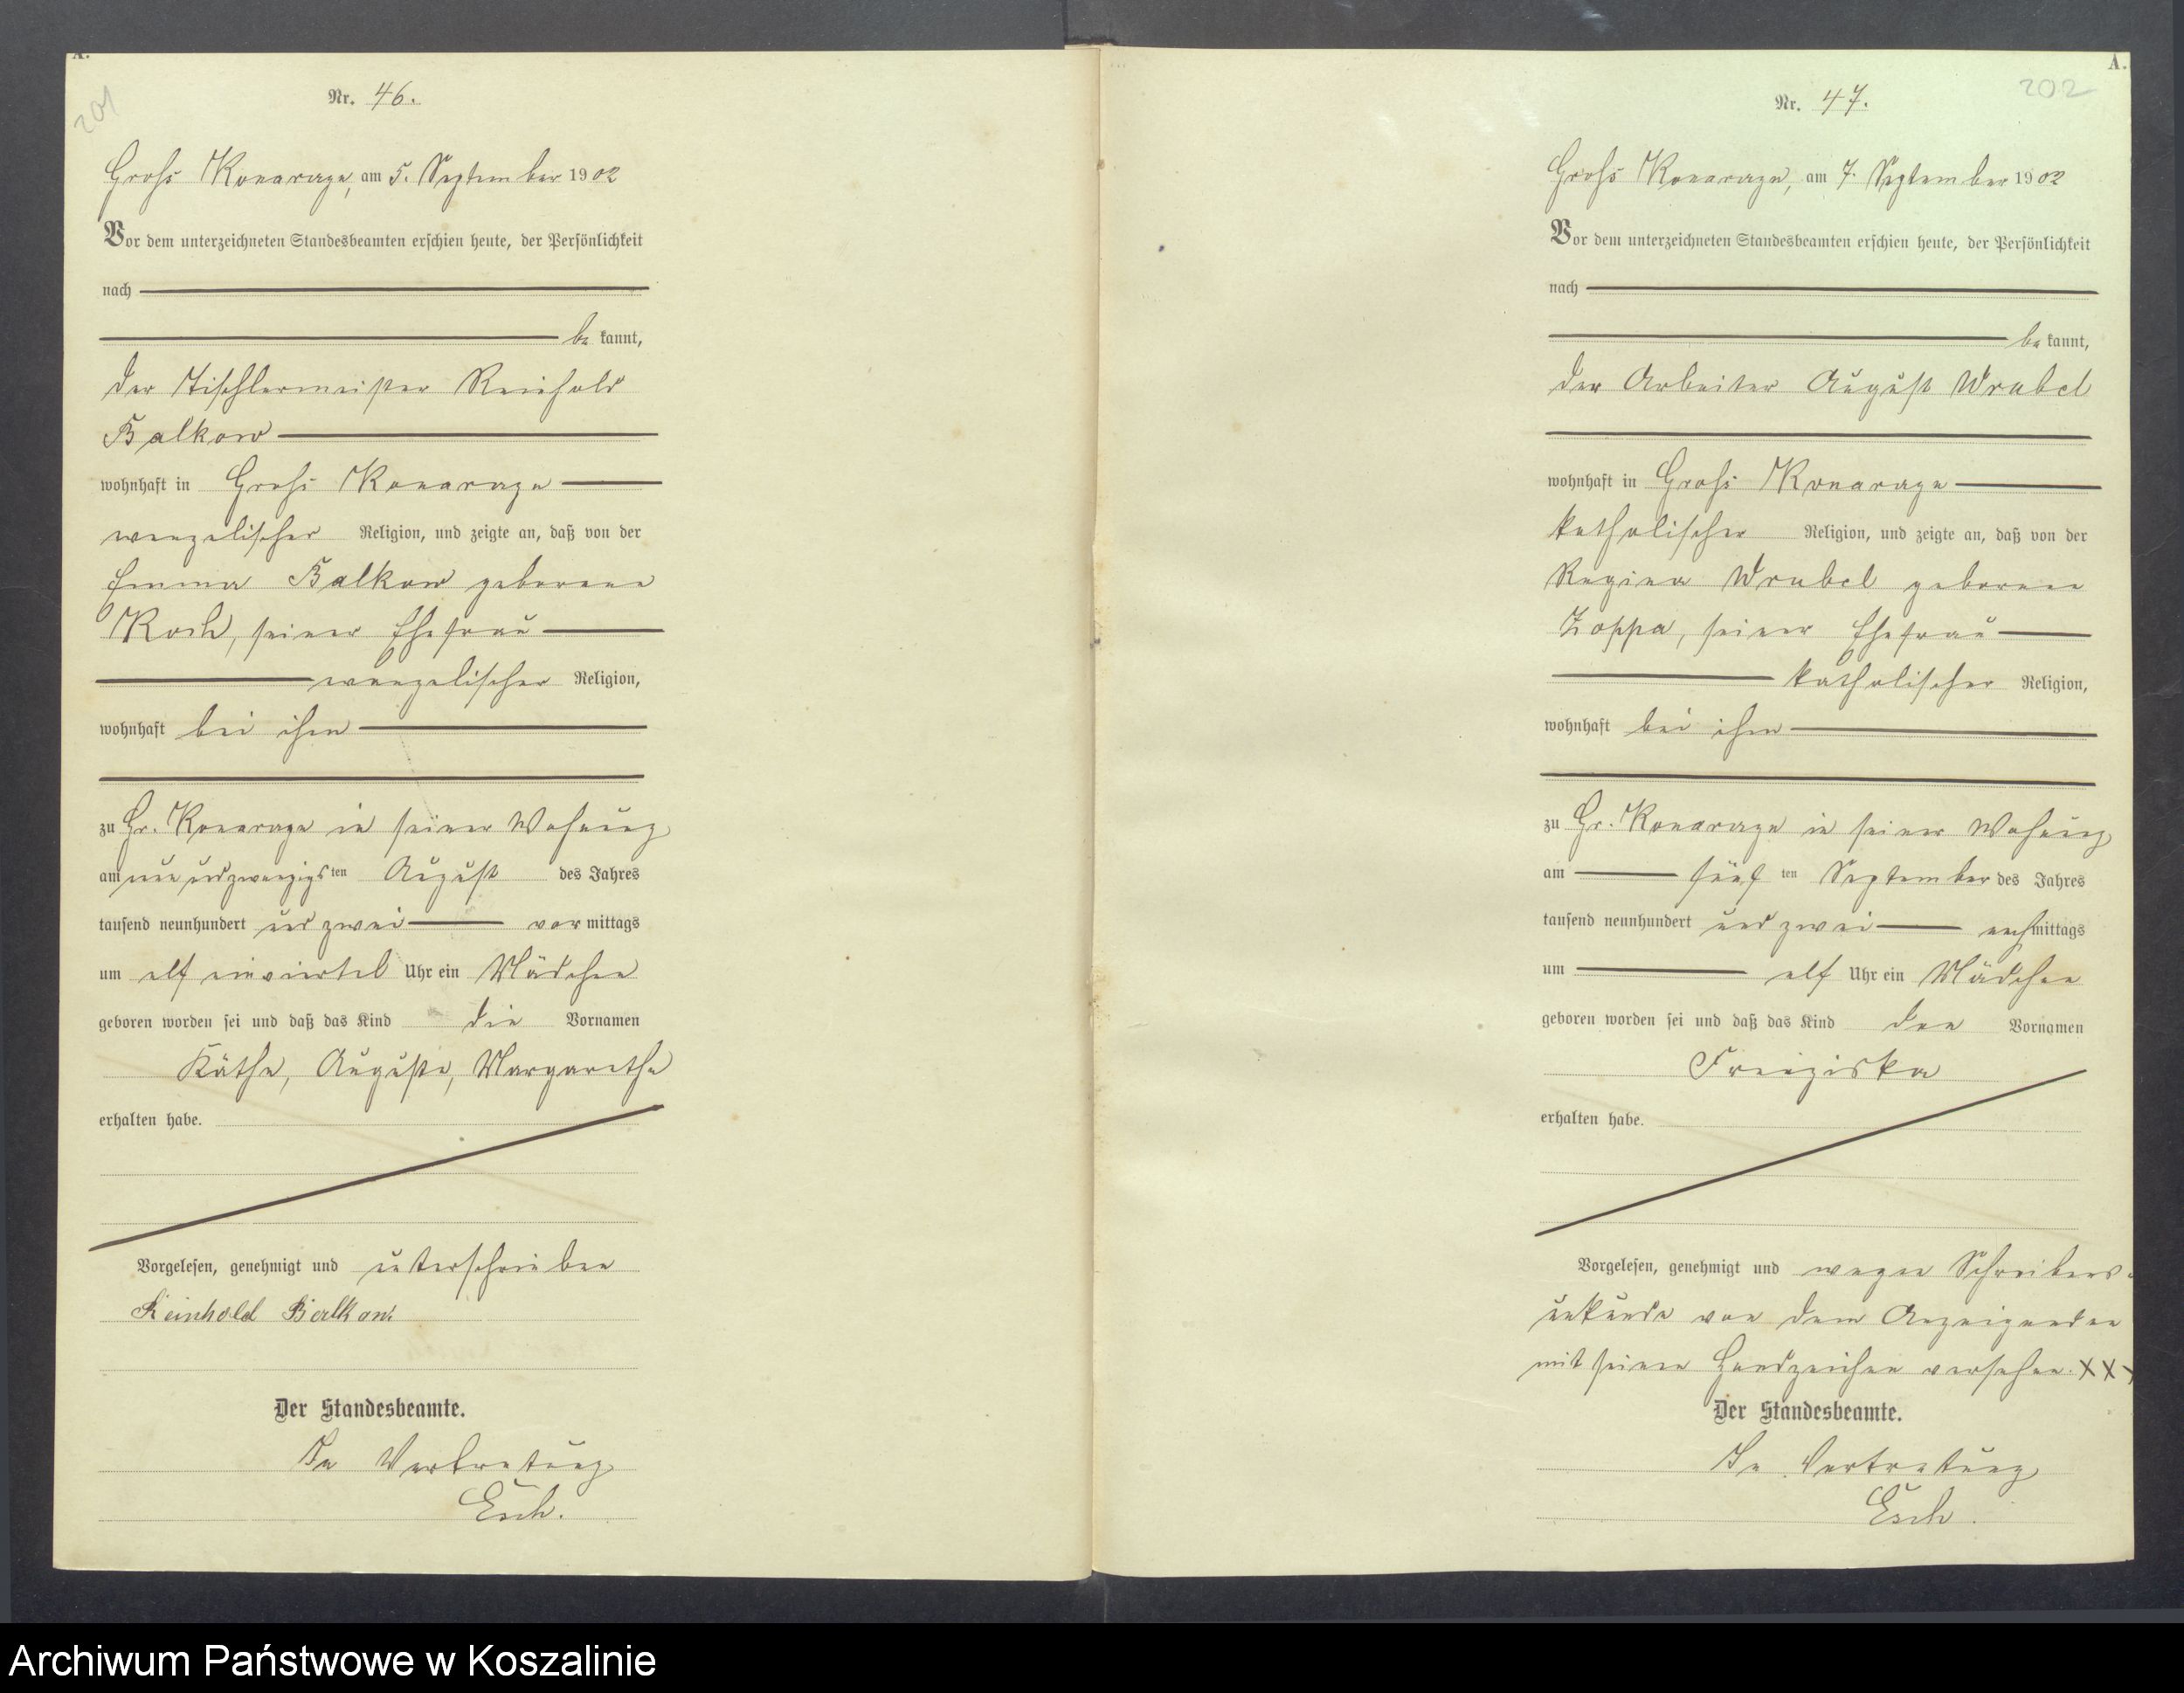 A.
201
Nr. 46.
Groß Konarzyn, am 5. September 1902
Vor dem unterzeichneten Standesbeamten erschien heute, der Persönlichkeit
nach
be kannt,
der Tischlermeister Reinhold
Balkow
wohnhaft in Groß Konarzyn
evangelischer Religion, und zeigte an, daß von der
Emma Balkow geborene
Koch, seiner Ehefrau
evangelischer Religion,
wohnhaft bei ihm
zu Gr. Konarzyn in seiner Wohnung
am neunundzwanzigsten August des Jahres
tausend neunhundert und zwei vormittags
um elf einviertel Uhr ein Mädchen
geboren worden sei und daß das Kind die Vornamen
Käthe, Auguste, Margarethe
erhalten habe.
Vorgelesen, genehmigt und unterschrieben
Reinhold Balkow
Der Standesbeamte.
In Vertretung
Esch.
A.
202
Nr. 47.
Groß Konarzyn, am 7. September 1902
Vor dem unterzeichneten Standesbeamten erschien heute, der Persönlichkeit
nach
be kannt,
der Arbeiter August Wrubel
wohnhaft in Groß Konarzyn
katholischer Religion, und zeigte an, daß von der
Regina Wrubel geborene
Zoppa, seiner Ehefrau
katholischer Religion,
wohnhaft bei ihm
zu Gr. Konarzyn in seiner Wohnung
am fünften September des Jahres
tausend neunhundert und zwei nachmittags
um elf Uhr ein Mädchen
geboren worden sei und daß das Kind den Vornamen
Franziska
erhalten habe.
Vorgelesen, genehmigt und wegen Schreibens-
unkunde von dem Anzeigenden
mit seinem Handzeichen versehen. XXX
Der Standesbeamte.
In Vertretung
Esch.
Archiwum Państwowe w Koszalinie